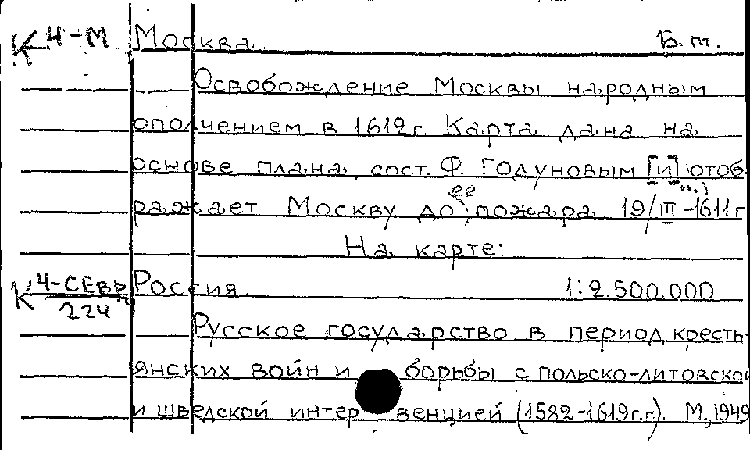 К 4-М Москва Б.м.
Освобождение Москвы народным
ополчением в 1612 г. Карта дана на
основе плана, сост. Ф. Годуновым [и] отоб-
ражает Москву до ее пожара 19/III-1611 г.
На карте:
К 4-СЕВР Россия 1:2.500.000
224
Русское государство в период кресть-
янских войн и борьбы с польско-литовской
и шведской интервенцией (1582-1619 г.г.). М., 1949